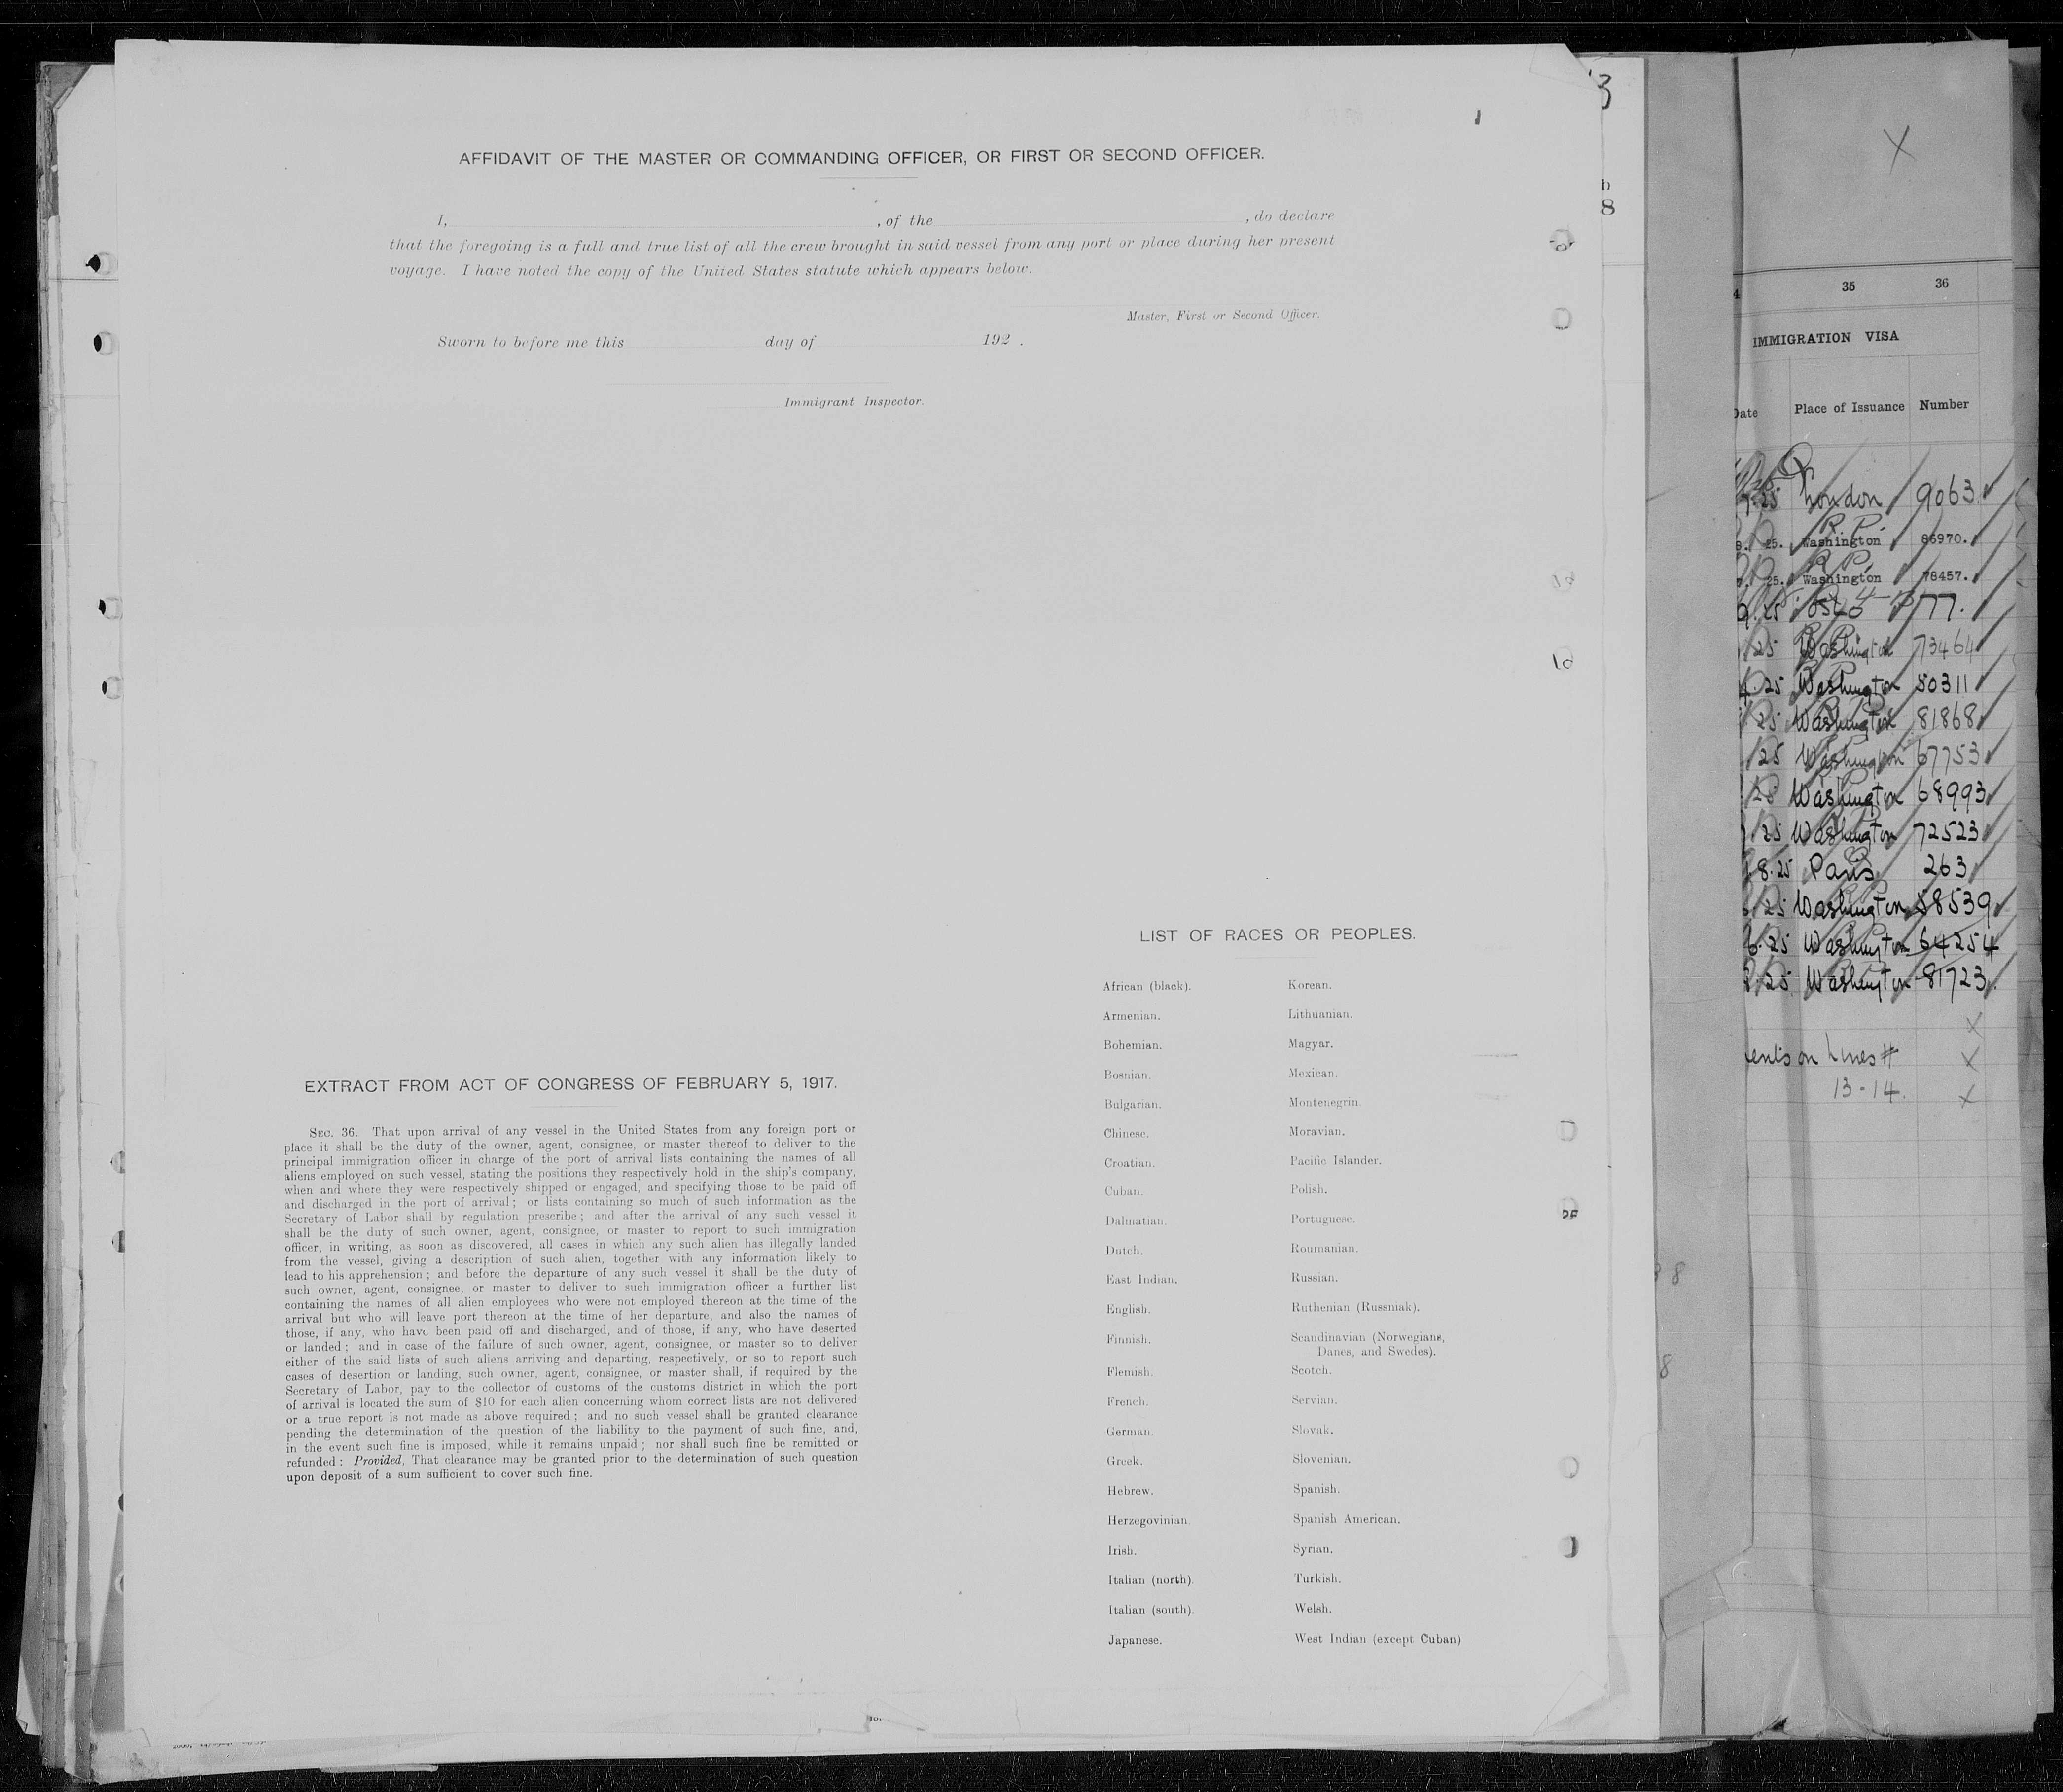 AFFIDAVIT OF THE MASTER OR COMMANDING OFFICER, OR FIRST OR SECOND OFFICER.
I, , of the , do declare
that the foregoing is a full and true list of all the crew brought in said vessel from any port or place during her present
voyage. I have noted the copy of the United States statute which appears below.
Master, First or Second Officer.
Sworn to before me this day of 192 .
Immigrant Inspector.
EXTRACT FROM ACT OF CONGRESS OF FEBRUARY 5, 1917.
SEC. 36. That upon arrival of any vessel in the United States from any foreign port or
place it shall be the duty of the owner, agent, consignee, or master thereof to deliver to the
principal immigration officer in charge of the port of arrival lists containing the names of all
aliens employed on such vessel, stating the positions they respectively hold in the ship's company,
when and where they were respectively shipped or engaged, and specifying those to be paid off
and discharged in the port of arrival; or lists containing so much of such information as the
Secretary of Labor shall by regulation prescribe; and after the arrival of any such vessel it
shall be the duty of such owner, agent, consignee, or master to report to such immigration
officer, in writing, as soon as discovered, all cases in which any such alien has illegally landed
from the vessel, giving a description of such alien, together with any information likely to
lead to his apprehension; and before the departure of any such vessel it shall be the duty of
such owner, agent, consignee, or master to deliver to such immigration officer a further list
containing the names of all alien employees who were not employed thereon at the time of the
arrival but who will leave port thereon at the time of her departure, and also the names of
those, if any, who have been paid off and discharged, and of those, if any, who have deserted
or landed; and in case of the failure of such owner, agent, consignee, or master so to deliver
either of the said lists of such aliens arriving and departing, respectively, or so to report such
cases of desertion or landing, such owner, agent, consignee, or master shall, if required by the
Secretary of Labor, pay to the collector of customs of the customs district in which the port
of arrival is located the sum of $10 for each alien concerning whom correct lists are not delivered
or a true report is not made as above required; and no such vessel shall be granted clearance
pending the determination of the question of the liability to the payment of such fine, and,
in the event such fine is imposed, while it remains unpaid; nor shall such fine be remitted or
refunded: Provided, That clearance may be granted prior to the determination of such question
upon deposit of a sum sufficient to cover such fine.
LIST OF RACES OR PEOPLES.
African (black). Korean.
Armenian. Lithuanian.
Bohemian. Magyar.
Bosnian. Mexican.
Bulgarian. Montenegrin.
Chinese. Moravian.
Croatian. Pacific Islander.
Cuban. Polish.
Dalmatian. Portuguese.
Dutch. Roumanian.
East Indian. Russian.
English. Ruthenian (Russniak).
Finnish. Scandinavian (Norwegians,
Danes, and Swedes).
Flemish. Scotch.
French. Servian.
German. Slovak.
Greek. Slovenian.
Hebrew. Spanish.
Herzegovinian. Spanish American.
Irish. Syrian.
Italian (north). Turkish.
Italian (south). Welsh.
Japanese. West Indian (except Cuban)
35 36
IMMIGRATION VISA
Date Place of Issuance Number
25 London 9063
R.P.
25. Washington 86970.
R.P.
25. Washington 78457.
25 Oslo 77.
25 Washington 73464
25 Washington 80311
25 Washington 81868
25 Washington 67753
25 Washington 68993
25 Washington 72523
8.25 Paris 263
25 Washington 58539
6.25 Washington 64254
25 Washington 81723
on Lines #
13-14.